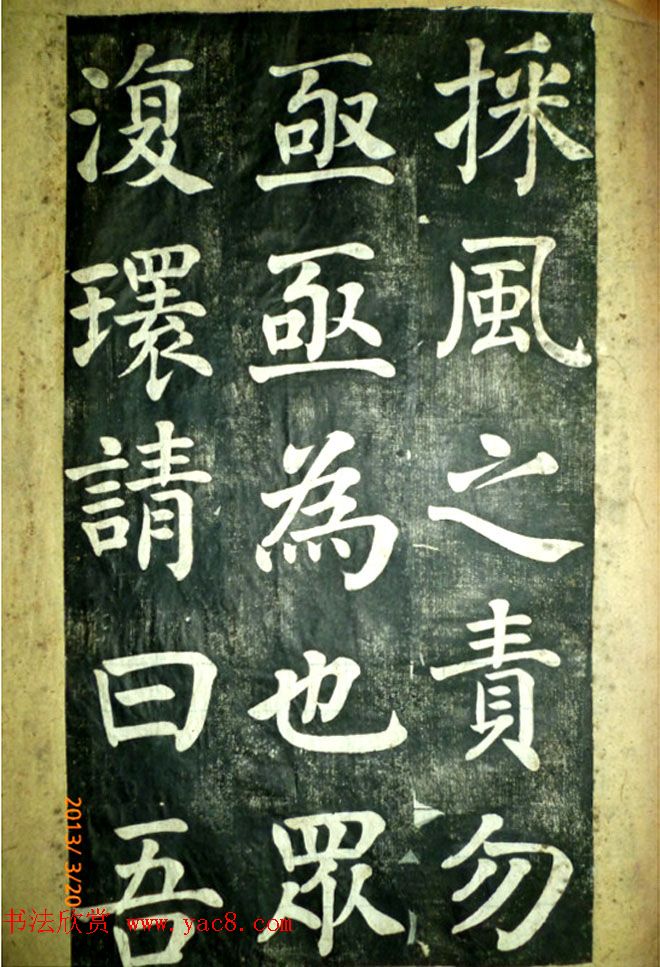 採風之責勿
亟亟為也眾
復環請曰吾
2013/ 3/20
书法欣赏 www.yac8.com